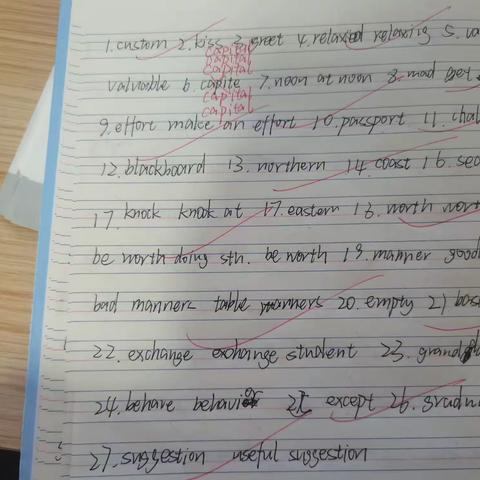 1. custom 2. kiss 3. greet 4. relaxed relaxing 5. va
capital
capital
capital
valuable 6. capite 7. noon at noon 8. mad get
capital
capital
9. effort make an effort 10. passport 11. chal
12. blackboard 13. northern 14. coast 16. sea
17. knock knock at 17. eastern 18. worth wort
be worth doing sth. be worth 19. manner good
bad manners table manners 20. empty 21 bas
22. exchange exchange student 23. grand
24. behave 25 except 26. gradu
27. suggestion useful suggestion